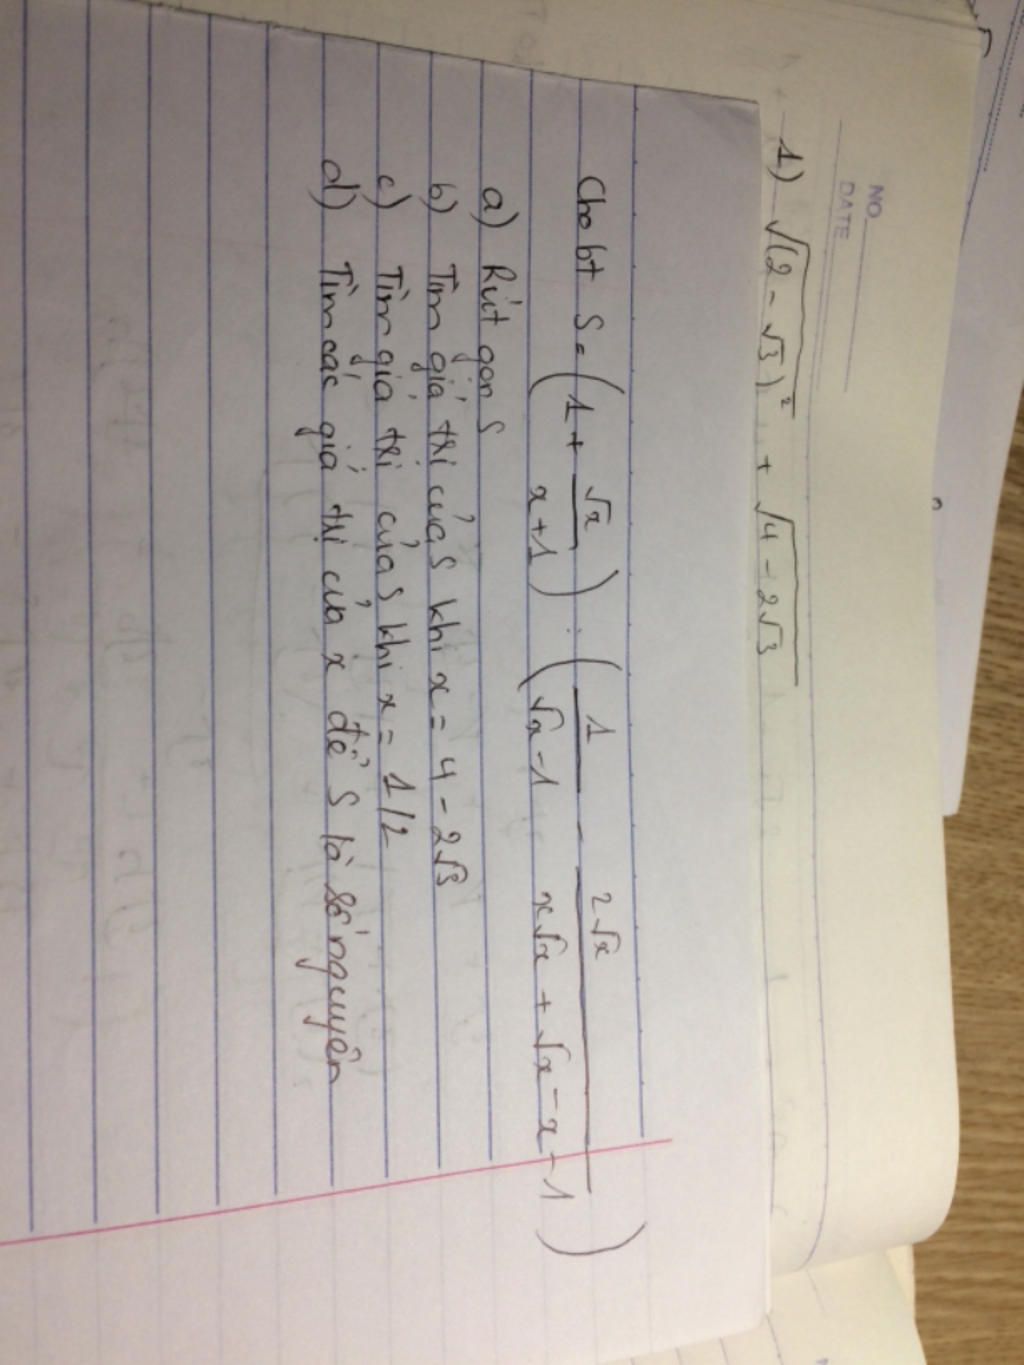 NO.
DATE
1) √(2 - √3)² + √4 - 2√3
Cho bt S = (1 + √x / x+1) : (1 / √x - 1 - 2√x / x√x + √x - x - 1)
a) Rút gọn S
b) Tìm giá trị của S khi x = 4 - 2√3
c) Tìm giá trị của S khi x = 1/2
d) Tìm các giá trị của x để S là số nguyên